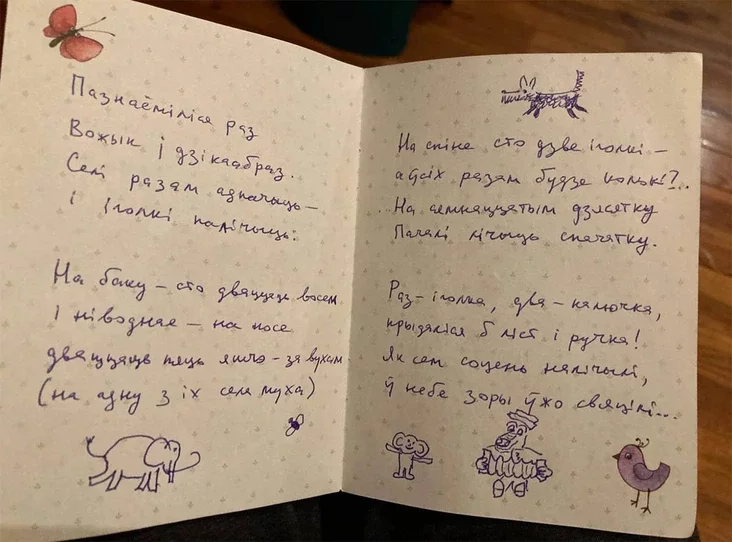 Пазнаёміліся раз
Вожык і дзікаабраз.
Селі разам адпачыць –
і іголкі палічыць:
На баку – сто дваццаць восем
І ніводнае – на носе
дваццаць пяць яшчэ – за вухам
(на адну з іх села муха)
На спіне сто дзве іголкі –
а ўсіх разам будзе колькі?..
..На семнаццатым дзясятку
Пачалі лічыць спачатку.
Раз – іголка, два – калючка,
прыдаліся б ліст і ручка!
Як сем соцень налічылі,
ў небе зоры ўжо свяцілі...